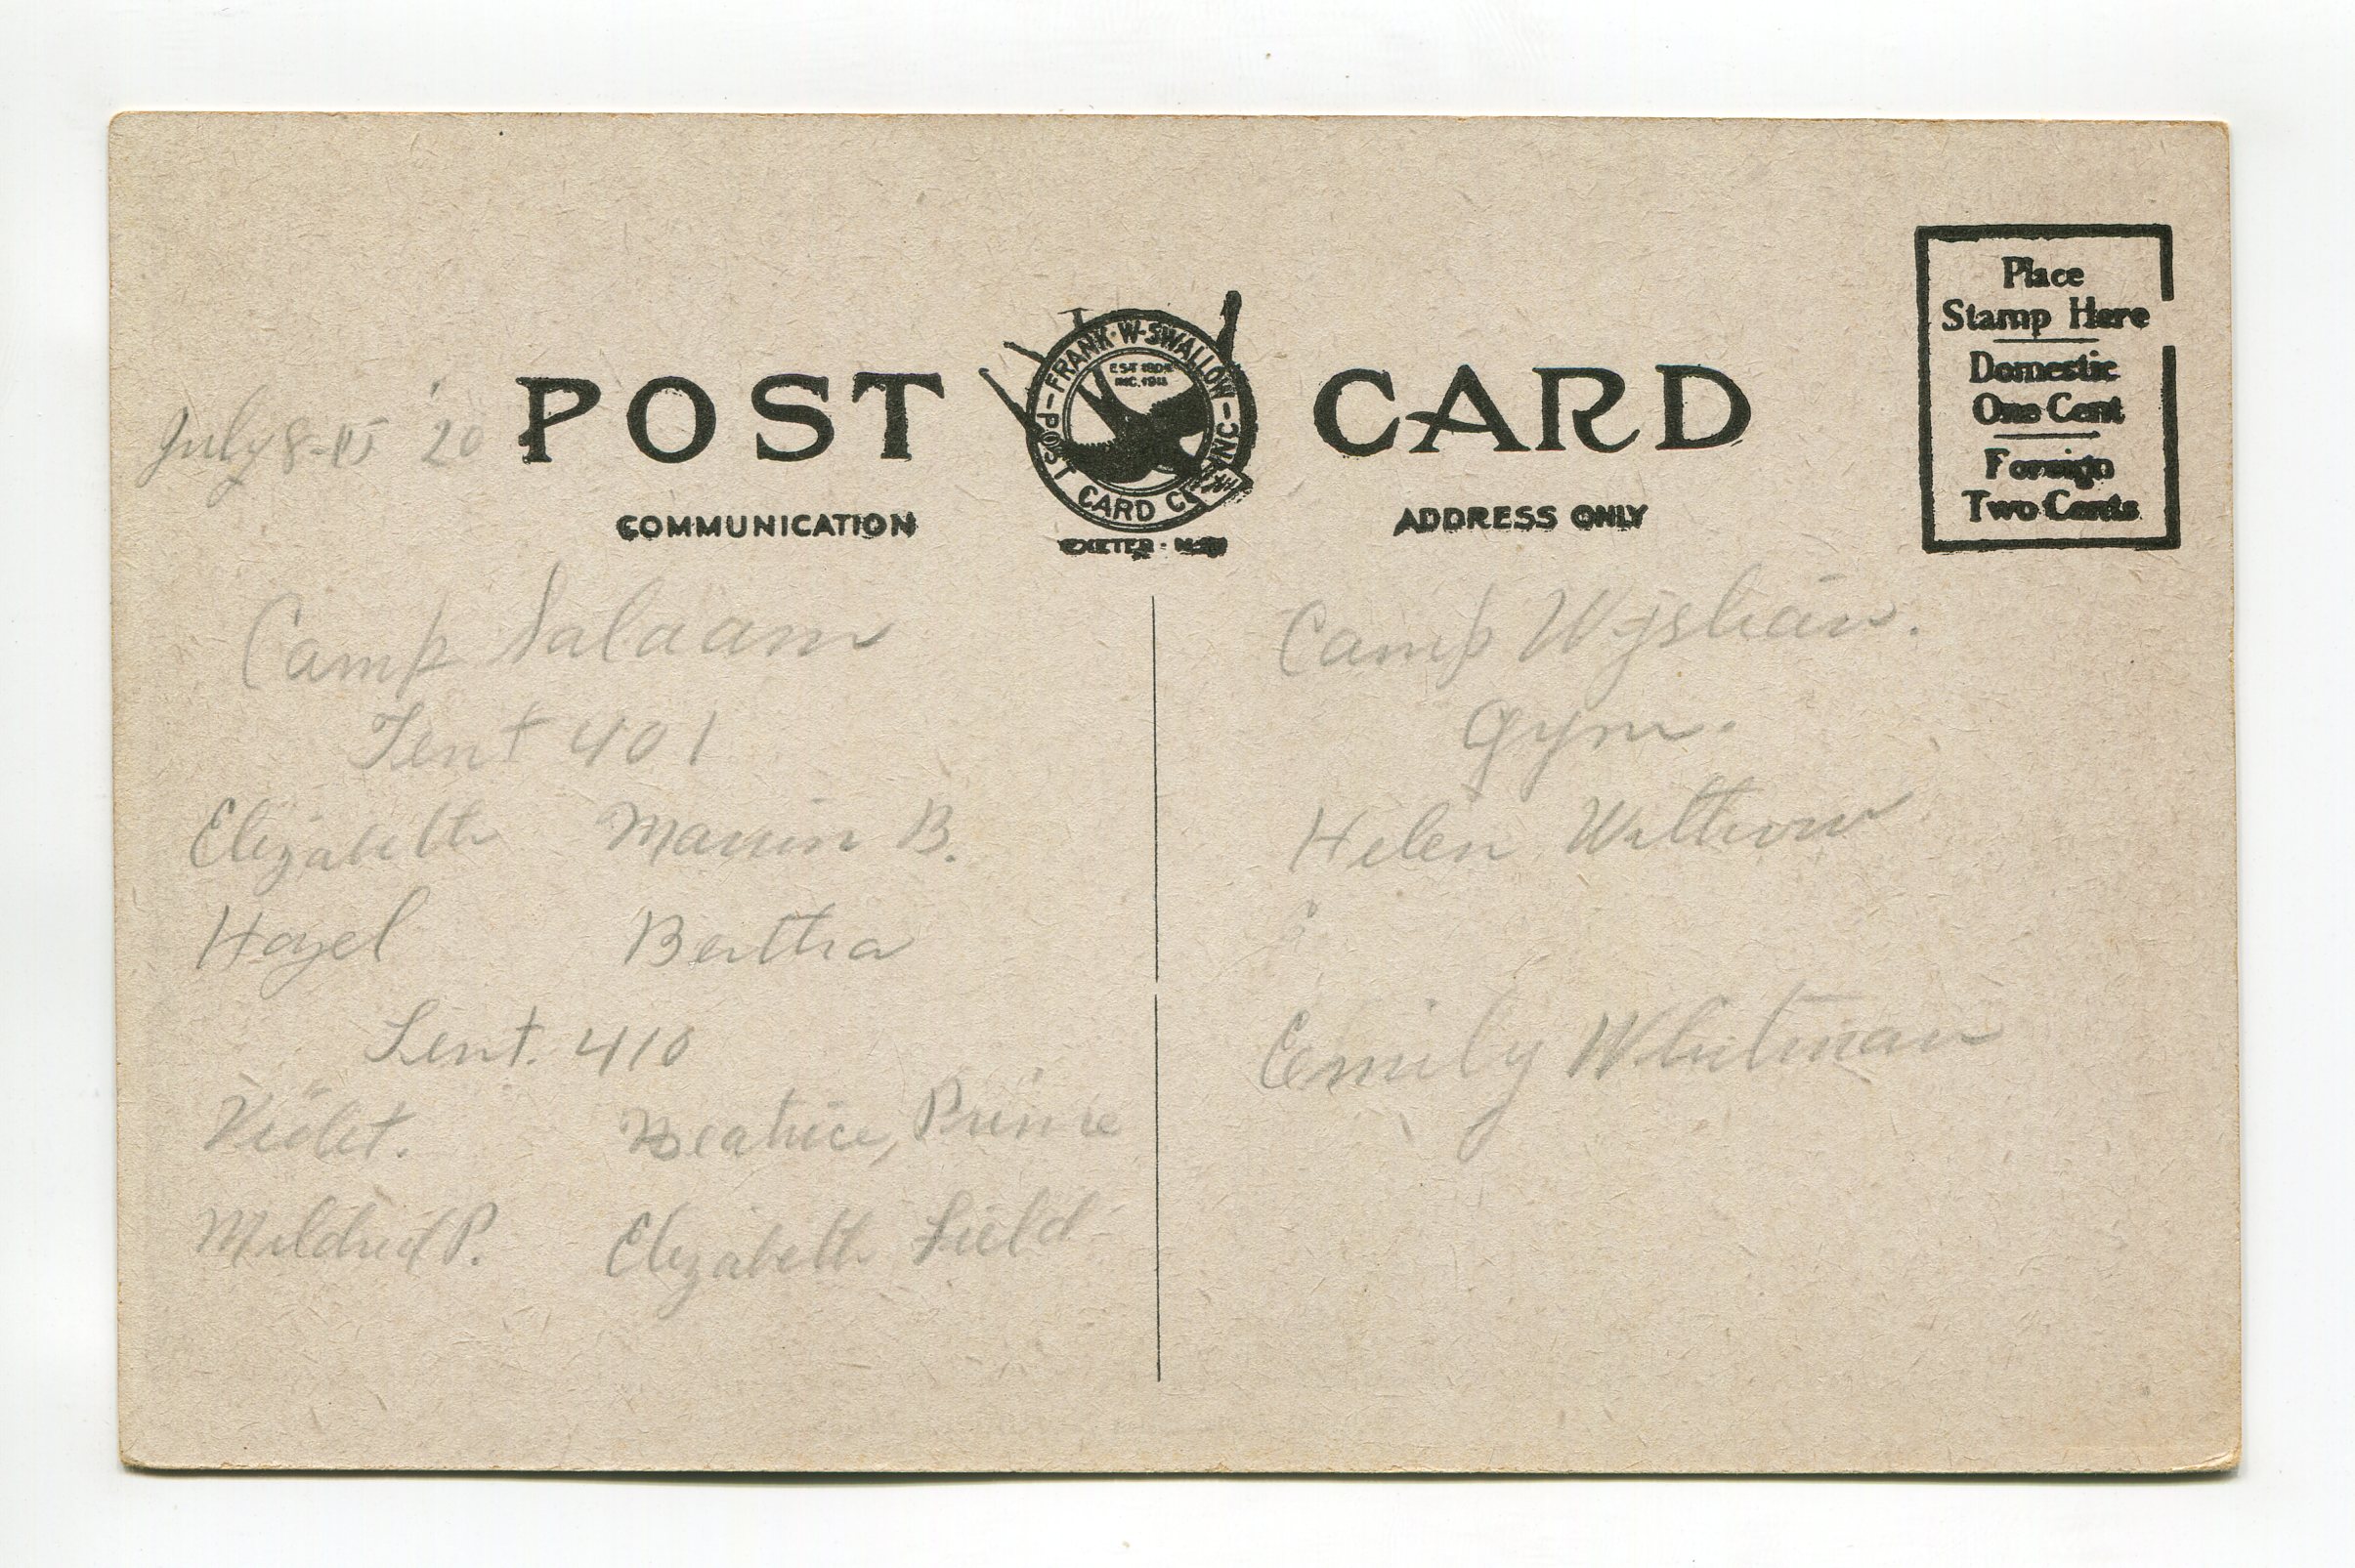 POST CARD
FRANK·W·SWALLOW
POST CARD CO. INC.
INC. 1913
EXETER
Place
Stamp Here
Domestic
One Cent
Foreign
Two Cents
July 8-15 '20
COMMUNICATION
ADDRESS ONLY
Camp Salaam
Tent 401
Elizabeth Marion B.
Hazel Bertha
Tent. 410
Violet. Beatrice, Prince
Mildred P. Elizabeth Field
Camp
Gym.
Helen
Emily Whitman